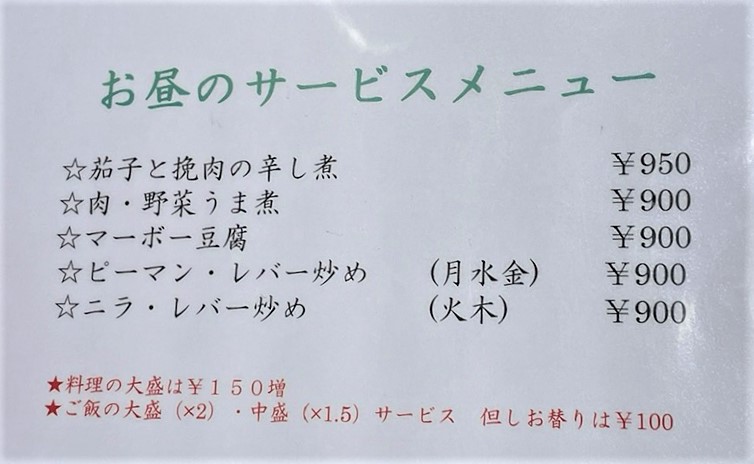 お昼のサービスメニュー
☆茄子と挽肉の辛し煮 ￥950
☆肉・野菜うま煮 ￥900
☆マーボー豆腐 ￥900
☆ピーマン・レバー炒め (月水金) ￥900
☆ニラ・レバー炒め (火木) ￥900
★料理の大盛は￥１５０増
★ご飯の大盛（×2）・中盛（×1.5）サービス 但しお替りは￥100